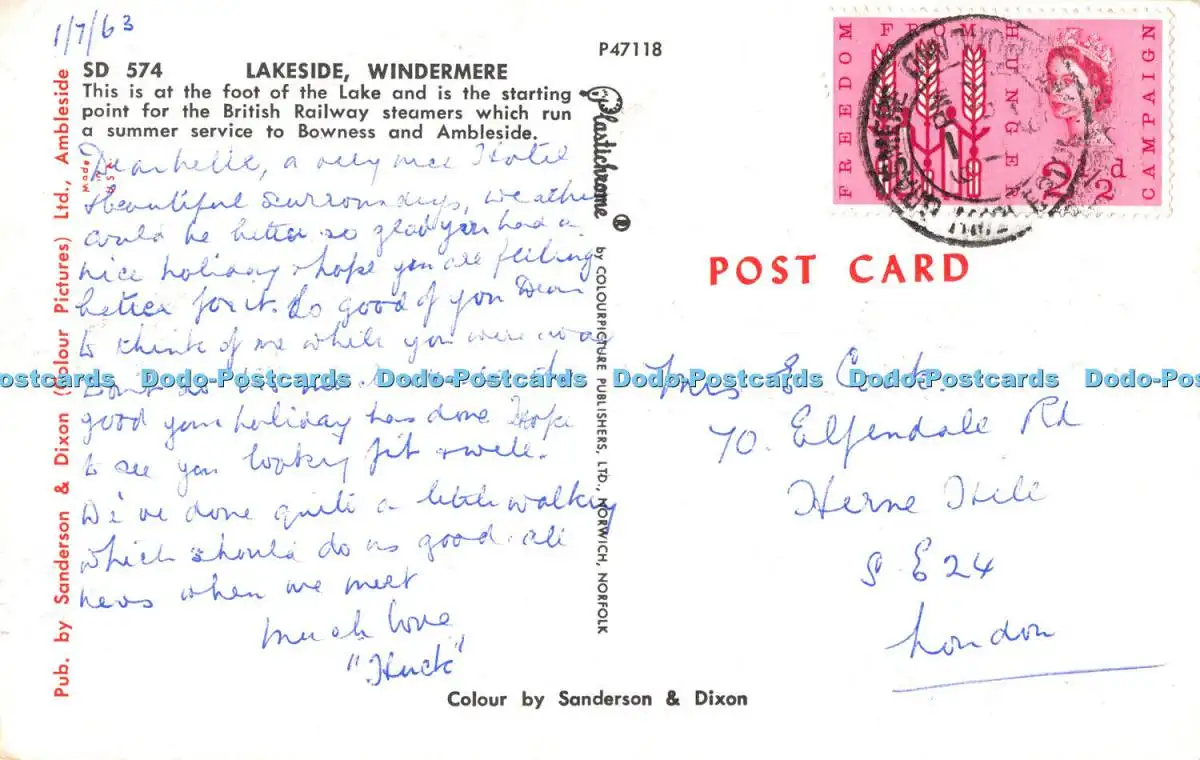 1/7/63
SD 574 LAKESIDE, WINDERMERE
This is at the foot of the Lake and is the starting
point for the British Railway steamers which run
a summer service to Bowness and Ambleside.
P47118
a very nice Hotel
beautiful surroundings, weather
could be better so glad you had a
nice holiday & hope you are feeling
better for it. So good of you Dear
to think of me while you were away
good your holiday has done Hope
to see you looking fit & well.
We've done quite a little walking
which should do us good. all
news when we meet
Much love
"Huck"
Pub. by Sanderson & Dixon (Colour Pictures) Ltd., Ambleside
Made in U.S.A.
Plastichrome ®
by COLOURPICTURE PUBLISHERS, LTD., NORWICH, NORFOLK
Colour by Sanderson & Dixon
FREEDOM FROM HUNGER CAMPAIGN
2½d
POST CARD
Mrs E
70. Elfendale Rd
Herne Hill
S E 24
London
Postcards Dodo-Postcards Dodo-Postcards Dodo-Postcards Dodo-Postcards Dodo-Post